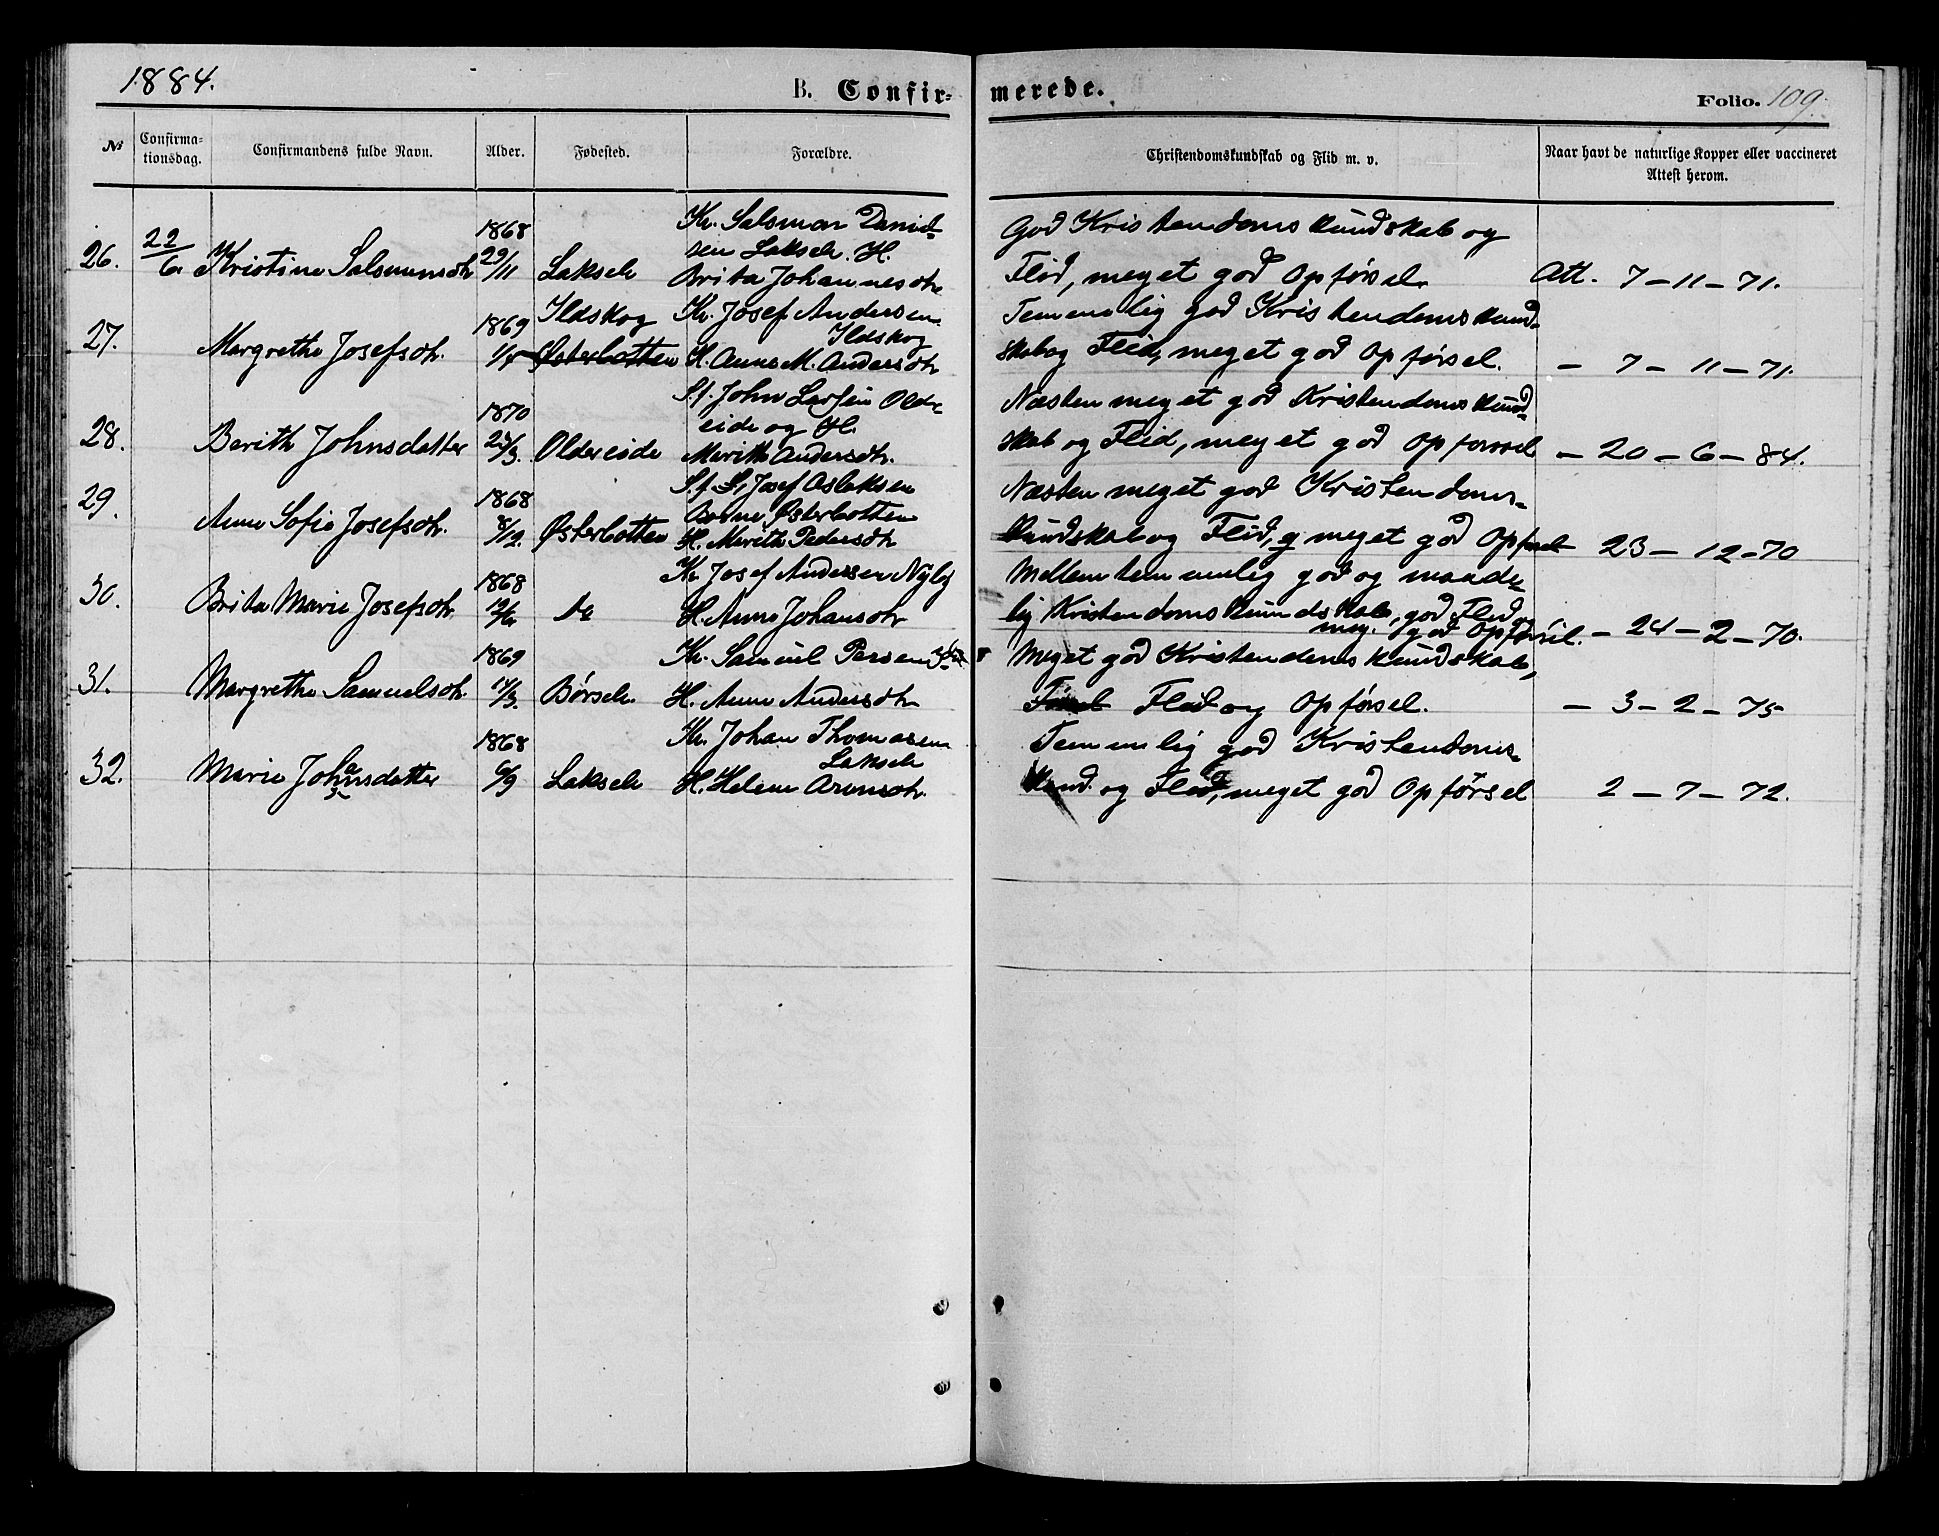 1884.
B. Confir-
merede.
Folio. 109.
№
Confirma-
tionsdag.
Confirmandens fulde Navn.
Alder.
Fødested.
Forældre.
Christendomskundskab og Flid m. v.
Naar havt de naturlige Kopper eller vaccineret
Attest herom.
26.
22/6.
Kristine Salomonsdtr
1868
29/11
Lakselv
Kv. Salomon Daniel-
sen Lakselv. H.
Brita Johannesdtr
God Kristendomskundskab og
Flid, meget god Opførsel.
Att. 7-11-71.
27.
Margrethe Josefsdtr.
1869
Ildskog
Østerbotten
Kv. Josef Andersen
Ildskog
H. Anne M. Andersdtr
Temmelig god Kristendomskund-
skab og Flid, meget god Opførsel.
- 7-11-71.
28.
Berith Johnsdatter
1870
Oldereide
Sf. John Larsen Older-
eide og H.
Marith Andersdtr.
Næsten meget god Kristendomskund-
skab og Flid, meget god Opførsel
- 20-6-84.
29.
Anne Sofie Josefsdtr.
1868
8/12.
Østerbotten
Josef Aslaksen
Østerbotten
H. Marith Pedersdtr
Næsten meget god Kristendoms-
kundskab og Flid, og meget god
23-12-70
30.
Brita Marie Josefsdtr.
1868
Do
Kv. Josef Andersen
H. Anne Johansdtr
Mellem temmelig god og maade-
lig Kristendomskundskab, god Flid,
meg. god Opførsel.
- 24-2-70.
31.
Margrethe Samuelsdtr.
1869
14/3.
Børselv.
Kv. Samuel Persen
H. Anne Andersdtr
Meget god Kristendomskundskab,
Flid og Opførsel.
- 3-2-75
32.
Marie Johansdatter
1868
6/9
Lakselv
Kv. Johan Thomasen
Lakselv
H. Helene Aronsdtr.
Temmelig god Kristendoms-
kund. og Flid, meget god Opførsel
2-7-72.